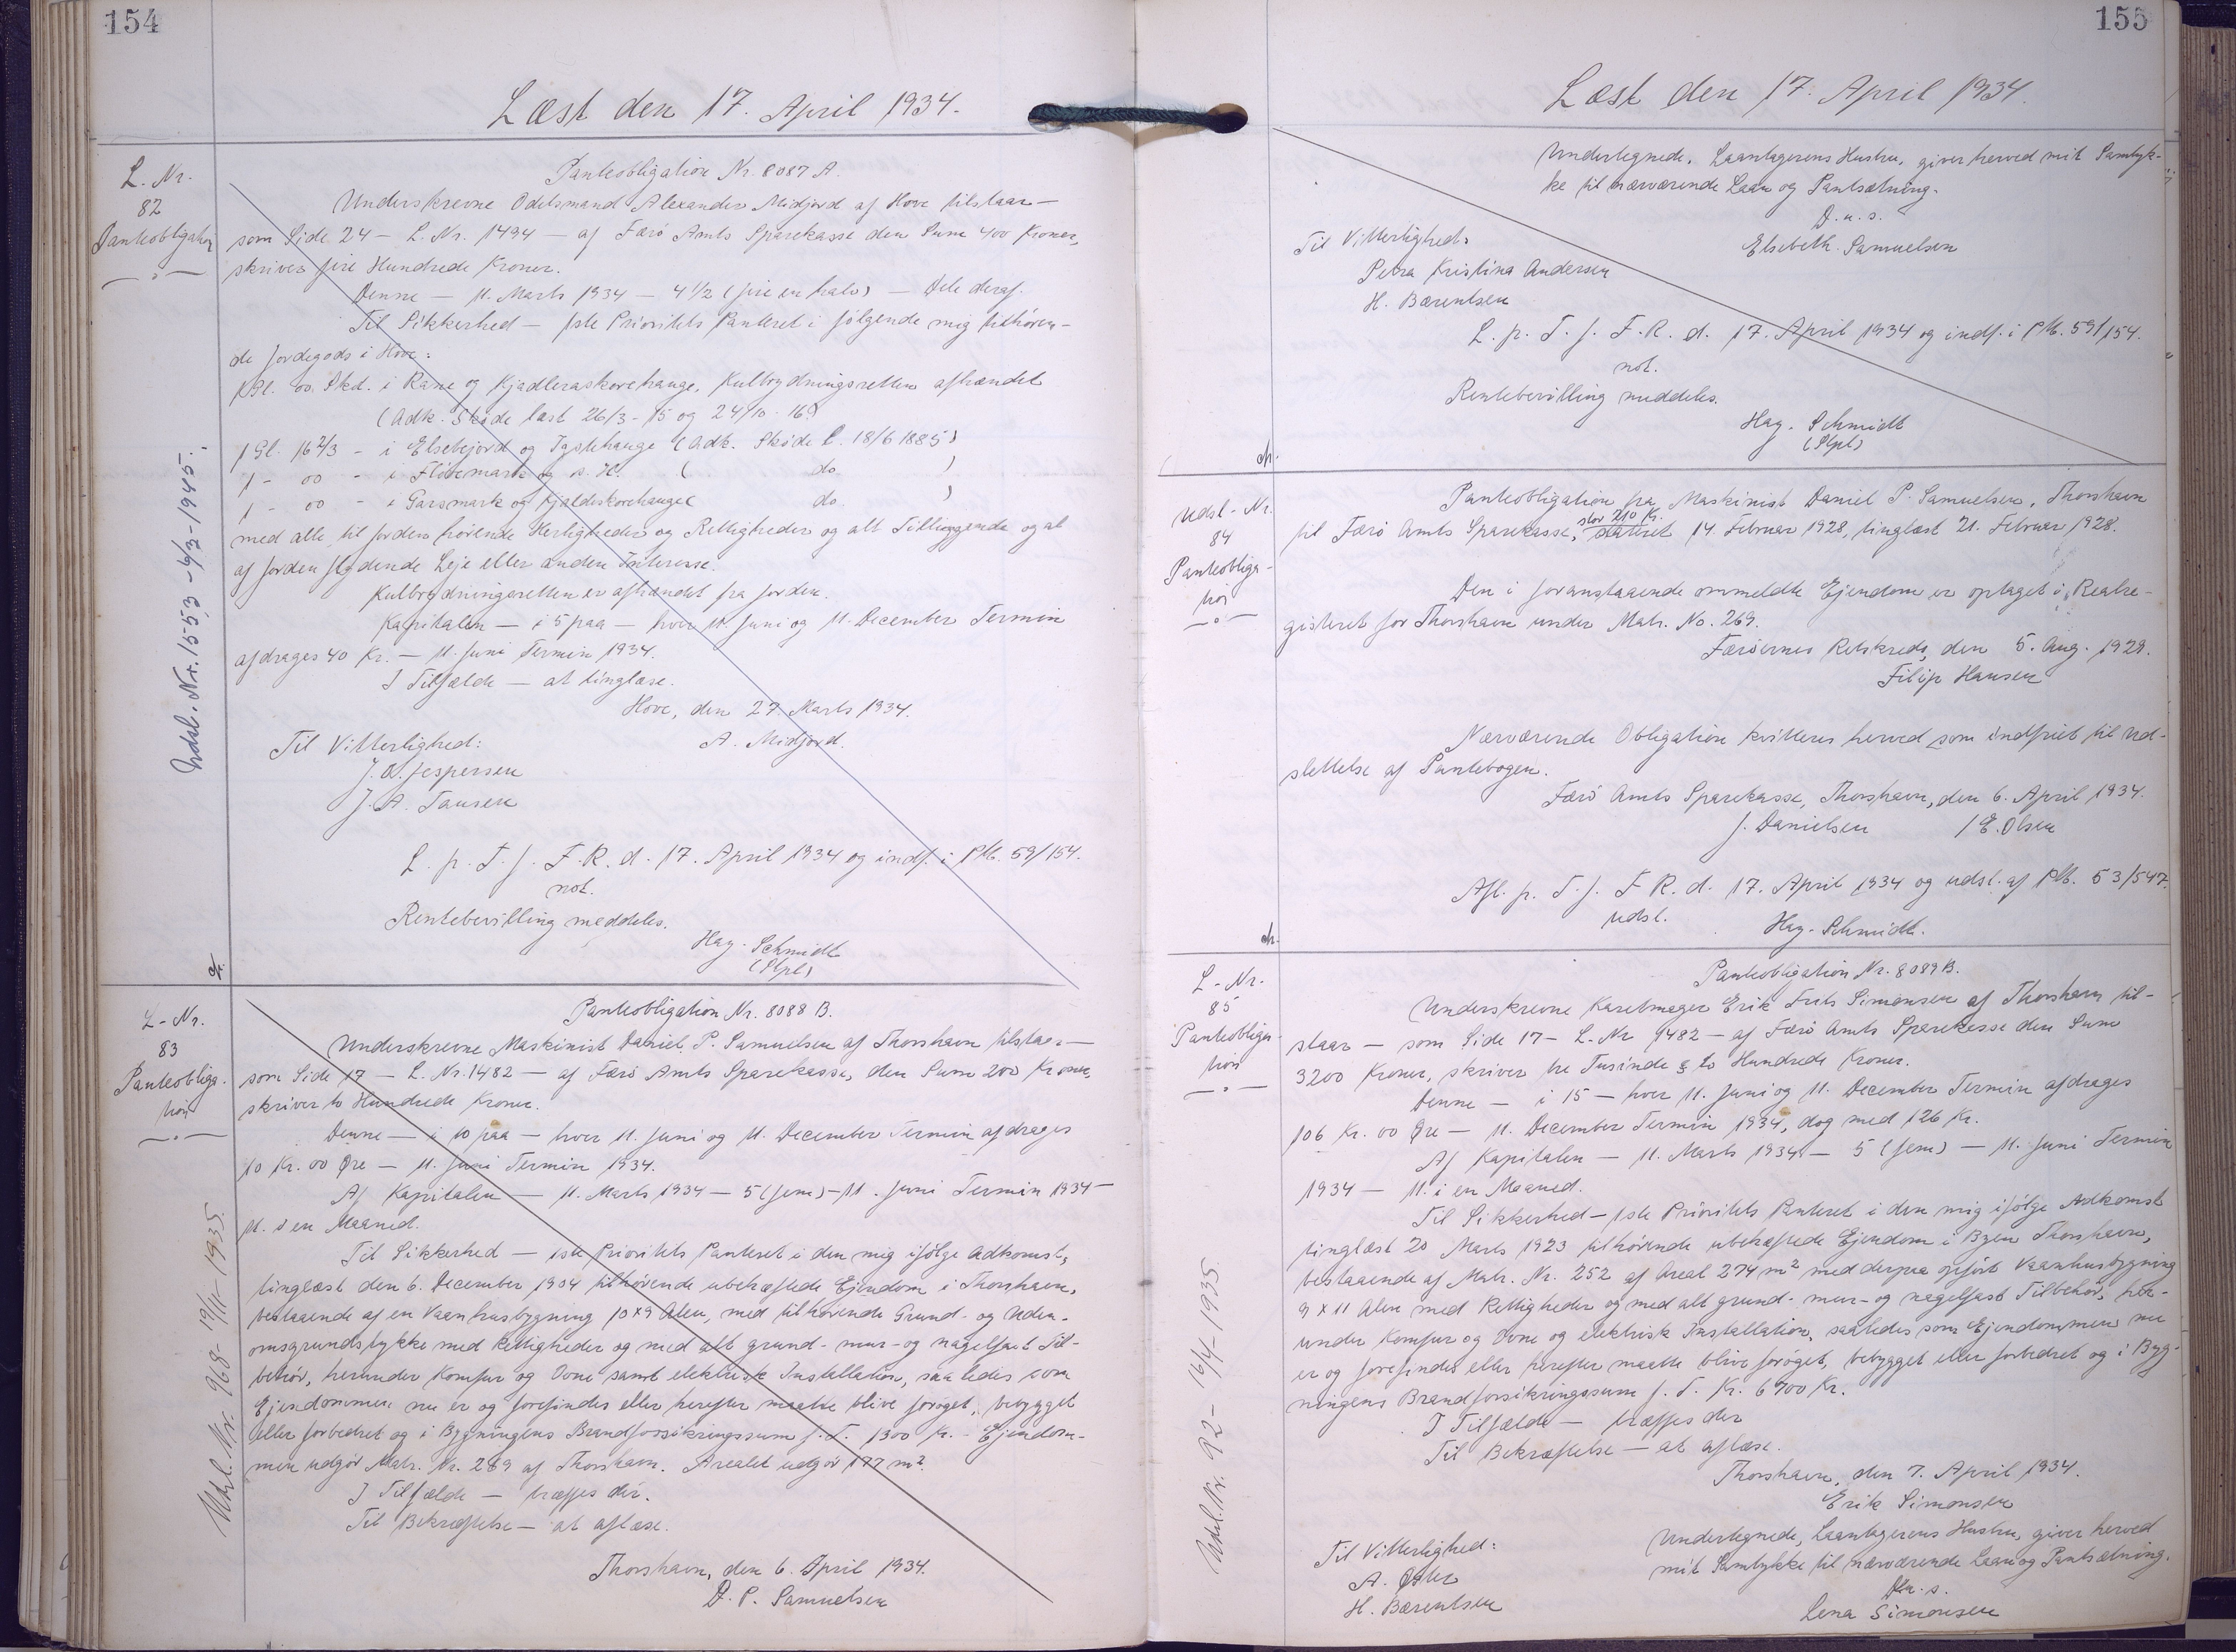 154
Læst den 17. April 1934.
L. Nr.
82
Panteobligation
Panteobligation Nr. 8087 A.
Underskrevne Odelsmand Alexander Midjord af Hove tilstaar —
som Side 24 — L. Nr. 1494 — af Færö Amts Sparekasse den Sum 400 Kroner,
skriver fire Hundrede Kroner.
Denne — 11. Marts 1934 — 4 1/2 (fire en halv) — Dele deraf.
Til Sikkerhed — 1ste Prioritets Panteret i fölgende mig tilhören-
de Jordegods i Hove:
1 Gl. 00. Skd. i Rane og Kjadleraskorehauge, Kulbrydningsretten afhændet
(Adk. Sköde læst 26/3-15 og 24/10-16)
1 Gl. 16 2/3 - i Elsebejord og Igstehauge (Adk. Sköde l. 18/6 1885)
1 - 00 - i Flöremark og s. H. ( do. )
1 - 00 - i Garsmark og Kjaldiskorehauge( do. )
med alle til Jorden hörende Herligheder og Rettigheder og alt Tilliggende og al
af Jorden flydende Leje eller anden Interesse.
Kulbrydningsretten er afhændet fra Jorden.
Kapitalen — i 5 paa — hver 11. Juni og 11. December Termin
afdrages 40 Kr. — 11. Juni Termin 1934.
I Tilfælde — at tinglæse.
Hove, den 27. Marts 1934.
Til Vitterlighed: A. Midjord.
J. O. Jespersen
J. A. Tausen
L. p. T. f. F. R. d. 17. April 1934 og indf. i Ptb. 59/154.
not.
Rentebevilling meddeles.
Hag. Schmidt
(Stpl)
Udsl. Nr. 1553 - 6/3 - 1945.
L-Nr.
83
Panteobliga-
tion
Panteobligation Nr. 8088 B.
Underskrevne Maskinist Daniel P. Samuelsen af Thorshavn tilstaar —
som Side 17 — L. Nr. 1482 — af Færö Amts Sparekasse, den Sum 200 Kroner,
skriver to Hundrede Kroner.
Denne — i 10 paa — hver 11. Juni og 11. December Termin afdrages
10 Kr. 00 Øre — 11. Juni Termin 1934.
Af Kapitalen — 11. Marts 1934 — 5 (fem) — 11. Juni Termin 1934 —
11. i en Maaned.
Til Sikkerhed — 1ste Prioritets Panteret i den mig ifölge Adkomst,
tinglæst den 6. December 1904 tilhörende ubehæftede Ejendom i Thorshavn,
bestaaende af en Vaanhusbygning 10x9 Alen, med tilhörende Grund- og Uden-
omsgrundstykke med Rettigheder og med alt grund- mur- og nagelfast Til-
behör, herunder Komfur og Ovne samt elektrisk Installation, saaledes som
Ejendommen nu er og forefindes eller herefter maatte blive foröget, bebygget
eller forbedret og i Bygningens Brandforsikringssum f. T. 1300 Kr. - Ejendom-
men udgör Matr. Nr. 269 af Thorshavn. Arealet udgör 177 m².
I Tilfælde — træffes der.
Til Bekræftelse — at aflæse.
Thorshavn, den 6. April 1934.
D. P. Samuelsen
Udsl. Nr. 968 - 19/11 - 1935.
155
Læst den 17. April 1934.
Undertegnede, Laantagerens Hustru, giver herved mit Samtyk-
ke til nærværende Laan og Pantsætning.
D. u. s.
Til Vitterlighed: Elsebeth Samuelsen
Petra Kristina Andersen
H. Bærentsen
L. p. T. f. F. R. d. 17. April 1934 og indf. i Ptb. 59/154.
not.
Rentebevilling meddeles.
Hag. Schmidt
(Stpl)
Udsl-Nr.
84
Panteobliga-
tion
Panteobligation fra Maskinist Daniel P. Samuelsen, Thorshavn
til Færö Amts Sparekasse, stor 210 Kr. dateret 14. Februar 1928, tinglæst 21. Februar 1928.
Den i foranstaaende ommeldte Ejendom er optaget i Realre-
gisteret for Thorshavn under Matr. No. 269.
Færöernes Retskreds, den 5. Aug. 1929.
Filip Hansen
Nærværende Obligation kvitteres herved som indfriet til Ud-
slettelse af Pantebogen.
Færö Amts Sparekasse, Thorshavn, den 6. April 1934.
J. Danielsen / E. Olsen
Afl. p. T. f. F. R. d. 17. April 1934 og udsl. af Ptb. 53/547.
udsl. Hag. Schmidt.
L-Nr.
85
Panteobliga-
tion
Panteobligation Nr. 8089 B.
Underskrevne Karetmager Erik Frits Simonsen af Thorshavn til-
staar — som Side 17 — L. Nr. 1482 — af Færö Amts Sparekasse den Sum
3200 Kroner, skriver tre Tusinde & to Hundrede Kroner.
Denne — i 15 — hver 11. Juni og 11. December Termin afdrages
106 Kr. 00 Øre — 11. December Termin 1934, dog med 126 Kr.
Af Kapitalen — 11. Marts 1934 — 5 (fem) — 11. Juni Termin
1934 — 11. i en Maaned.
Til Sikkerhed — 1ste Prioritets Panteret i den mig ifölge Adkomst
tinglæst 20 Marts 1923 tilhörende ubehæftede Ejendom i Byen Thorshavn,
bestaaende af Matr. Nr. 252 af Areal 274 m² med derpaa opfört Vaanhusbygning
9 x 11 Alen med Rettigheder og med alt grund- mur- og nagelfast Tilbehör, her-
under Komfur og Ovne og elektrisk Installation, saaledes som Ejendommen nu
er og forefindes eller herefter maatte blive foröget, bebygget eller forbedret og i Byg-
ningens Brandforsikringssum f. T. Kr. 6900 Kr.
I Tilfælde — træffes der
Til Bekræftelse — at aflæse.
Thorshavn, den 7. April 1934.
Erik Simonsen
Undertegnede, Laantagerens Hustru, giver herved
mit Samtykke til nærværende Laan og Pantsætning.
D. u. s.
Lena Simonsen
Til Vitterlighed:
A.
H. Bærentsen
Udsl. Nr. 92 - 16/4 - 1935.